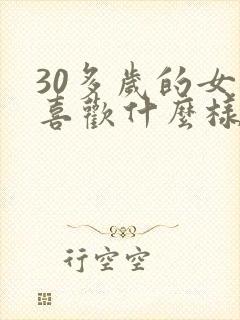 30多歲的女
喜歡什麼樣
行空空